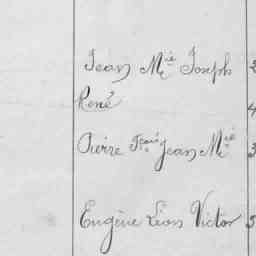 Jean Mie Joseph 2
René 4
Pierre Fçois Jean Mie 3
Eugène Léon Victor 5